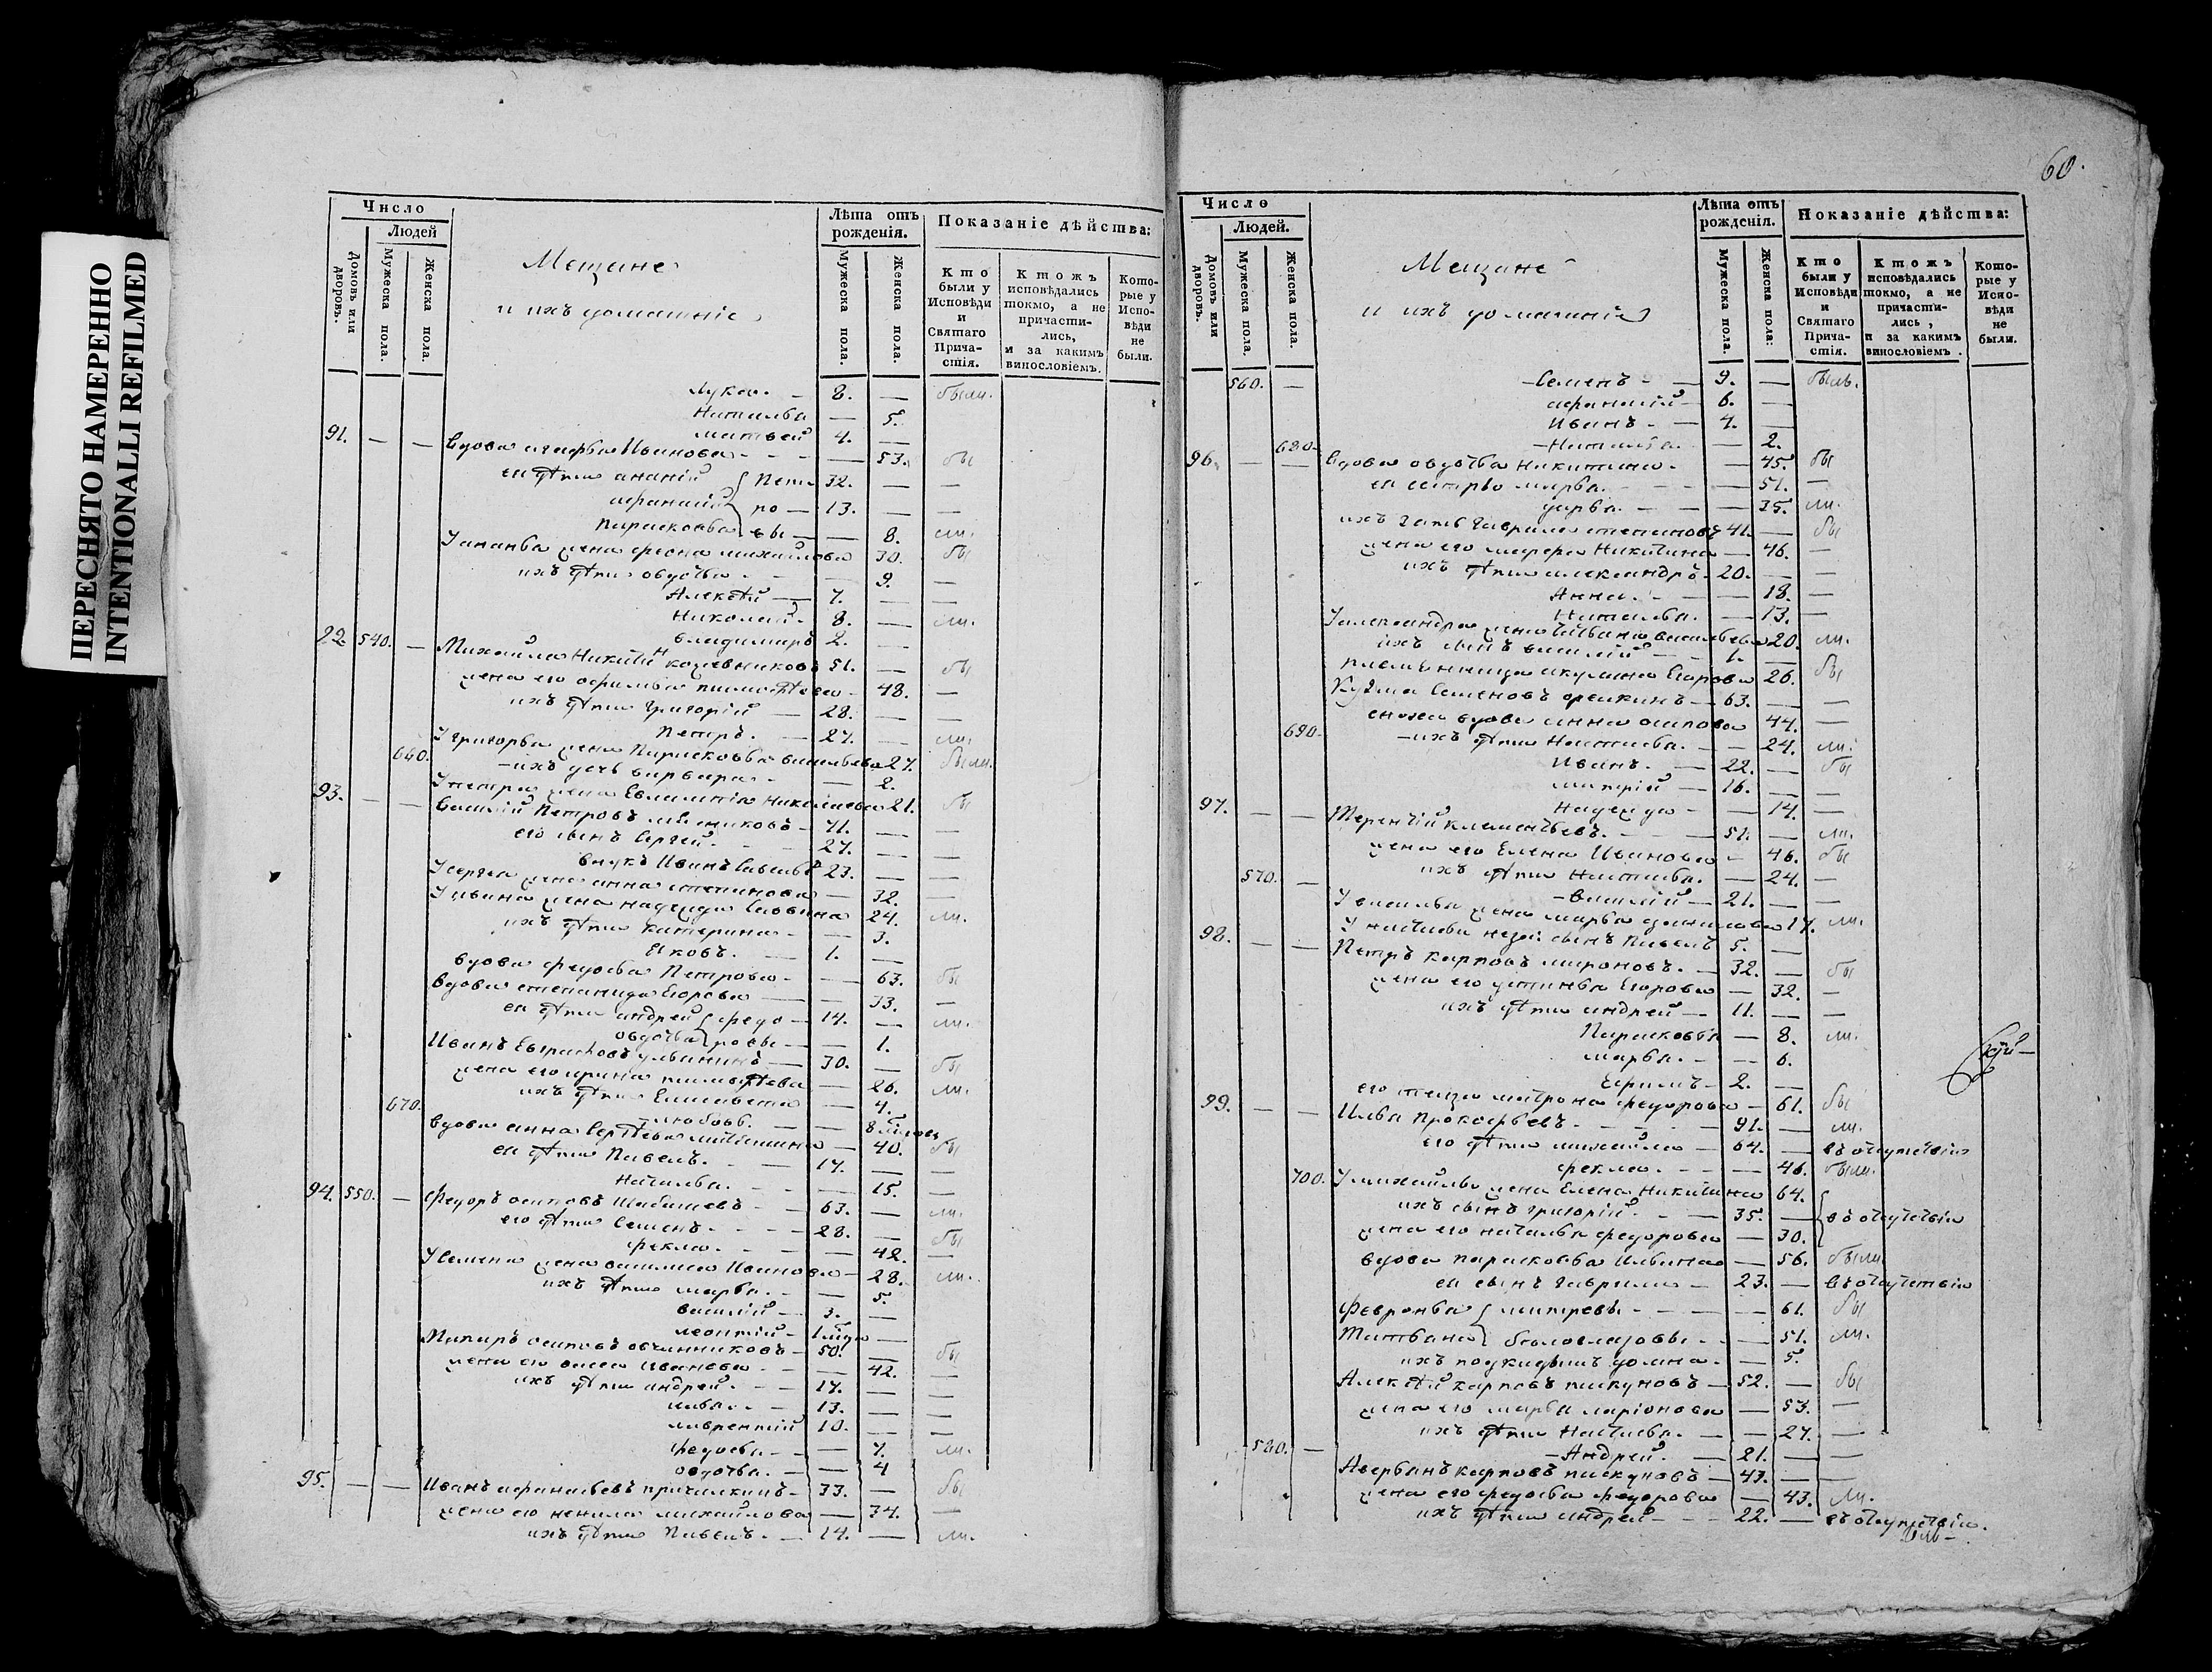 ПЕРЕСНЯТО НАМЕРЕННО
INTENTIONALLI REFILMED
Число
Людей
Домовъ или дворовъ.
Мужеска пола.
Женска пола.
Мещане
и ихъ домашніе
Лѣта отъ рожденія.
Мужеска пола.
Женска пола.
Показаніе дѣйства:
Кто были у Исповѣди и Святаго Прича-стія.
Ктожъ исповѣдались токмо, а не причасти-лись, и за какимъ винословіемъ.
Кото-рые у Испо-вѣди не были.
Лука 8. — были.
Наталья — 5.
Матвей 4. —
91. — — Вдова Агафья Иванова — 53. бы
ея дѣти Ананій { Пет 32. — —
Афанасій по 13. — —
Парасковья вы — 8. ли.
У Ананья жена Фекла Михайлова 30. бы
ихъ дѣти Авдотья — 9. —
Алексѣй 7. — —
Николай 8. — ли.
Владимиръ 2. —
92. 540. — Михайло Никитинъ Кожевниковъ 51. — бы
жена его Афимья Тимофѣева 48. —
ихъ дѣти Григорій 28. — —
Петръ 27. — ли.
660. У Григорья жена Парасковья Васильева 27. были.
ихъ дочь Варвара — 2.
У Петра жена Евлампія Николаева 21. бы
93. — — Василій Петровъ 71. — —
его сынъ Сергей 27. — —
внукъ Иванъ Савельевъ 23. — —
У Сергея жена Анна Степанова 32. —
У Ивана жена Надежда Саввина 24. ли.
ихъ дѣти Катерина — 3.
Яковъ 1. —
Вдова Федосья Петрова — 63. бы
Вдова Степанида Егорова — 33. —
ея дѣти Андрей { Федо 14. — ли.
Авдотья ровы — 1.
Иванъ Евграфовъ Ульянинъ 30. — бы
жена его Ирина Тимофѣева — 26. ли.
ихъ дѣти Елисавета — 4.
670. Любовь — 8
Вдова Анна Сергѣева 40. бы
ея дѣти Павелъ 17. — —
Наталья — 15. —
94. 550. — Федоръ Осиповъ Шабашевъ 63. — ли.
его дѣти Семенъ 28. — бы
Фекла — 42. —
У Семена жена Василиса Иванова 28. ли.
ихъ дѣти Марья — 5.
Василій 3. —
Леонтій 1 —
Осиповъ Овчинниковъ 50. — бы
жена его Иванова — 42. —
ихъ дѣти Андрей 17. — —
Илья 13. — —
Лаврентій 10. — —
Федосья — 7. ли.
Авдотья — 4
95. — — Иванъ Афанасьевъ 33. — бы
жена его Ненила Михайлова — 34. —
ихъ дѣти Павелъ 14. — ли.
60.
Число
Людей.
Домовъ или дворовъ.
Мужеска пола.
Женска пола.
Мещане
и ихъ домашніе
Лѣта отъ рожденія.
Мужеска пола.
Женска пола:
Показаніе дѣйства:
Кто были у Исповѣди и Святаго Прича-стія.
Ктожъ исповѣдались токмо, а не причасти-лись, и за какимъ винословіемъ.
Кото-рые у Испо-вѣди не были.
560. — Семенъ 9. — былъ.
Афанасій 6. —
Иванъ 4. —
680. Наталья — 2.
96. — — Вдова Авдотья Никитина — 45. бы
ея сестры Марья — 51. —
Дарья — 35. ли.
ихъ зять Гаврила Степановъ 41. — бы
жена его Никитина — 46. —
ихъ дѣти Александръ 20. — —
Анна — 18. —
Наталья — 13. —
У Александра жена Татьяна Васильева 20. ли.
ихъ сынъ Василій 1. —
племянница Акулина Егорова 26. бы
Кузма Семеновъ 63. — —
сноха вдова Анна Осипова 44. —
690. ихъ дѣти Настасья — 24. ли.
Иванъ 22. — бы
Дмитрій 16. — —
Надежда — 14. —
97. — — Терентій Клементьевъ 51. — ли.
жена его Елена Иванова — 46. бы
ихъ дѣти Настасья — 24. —
570. — Василій 21. — —
У Василья жена Марья Данилова 17. ли.
У Настасьи незак. сынъ Павелъ 5. —
98. — — Петръ Карповъ Мироновъ 32. — бы
жена его Устинья Егорова — 32. —
ихъ дѣти Андрей 11. — —
Парасковья — 8. ли.
Марья — 6.
Ефимъ 2. —
его теща Матрона Федорова — 61. бы
99. — — Илья Прокофьевъ 91. — ли.
его дѣти Михайло 64. — въ отсутствіи
Фекла — 46. были.
700. У Михайлы жена Елена Никитина 64.
ихъ сынъ Григорій 35. — } въ отсутствіи
жена его Наталья Федорова — 30.
вдова Парасковья Ильина — 56. были.
ея сынъ Гаврила 23. — въ отсутствіи
Февронья { Дмитревы — 61. бы
Татьяна Бѣлоглазовы — 51. ли.
ихъ подкидышъ Домна — 5.
Алексѣй Карповъ Пискуновъ 52. — бы
жена его Марья Ларіонова — 53. —
ихъ дѣти Настасья — 27. —
580. — Андрей 21. — —
Аверьянъ Карповъ Пискуновъ 43. — —
жена его Федосья Федорова — 43. ли.
ихъ дѣти Андрей 22. — въ отсутствіи.